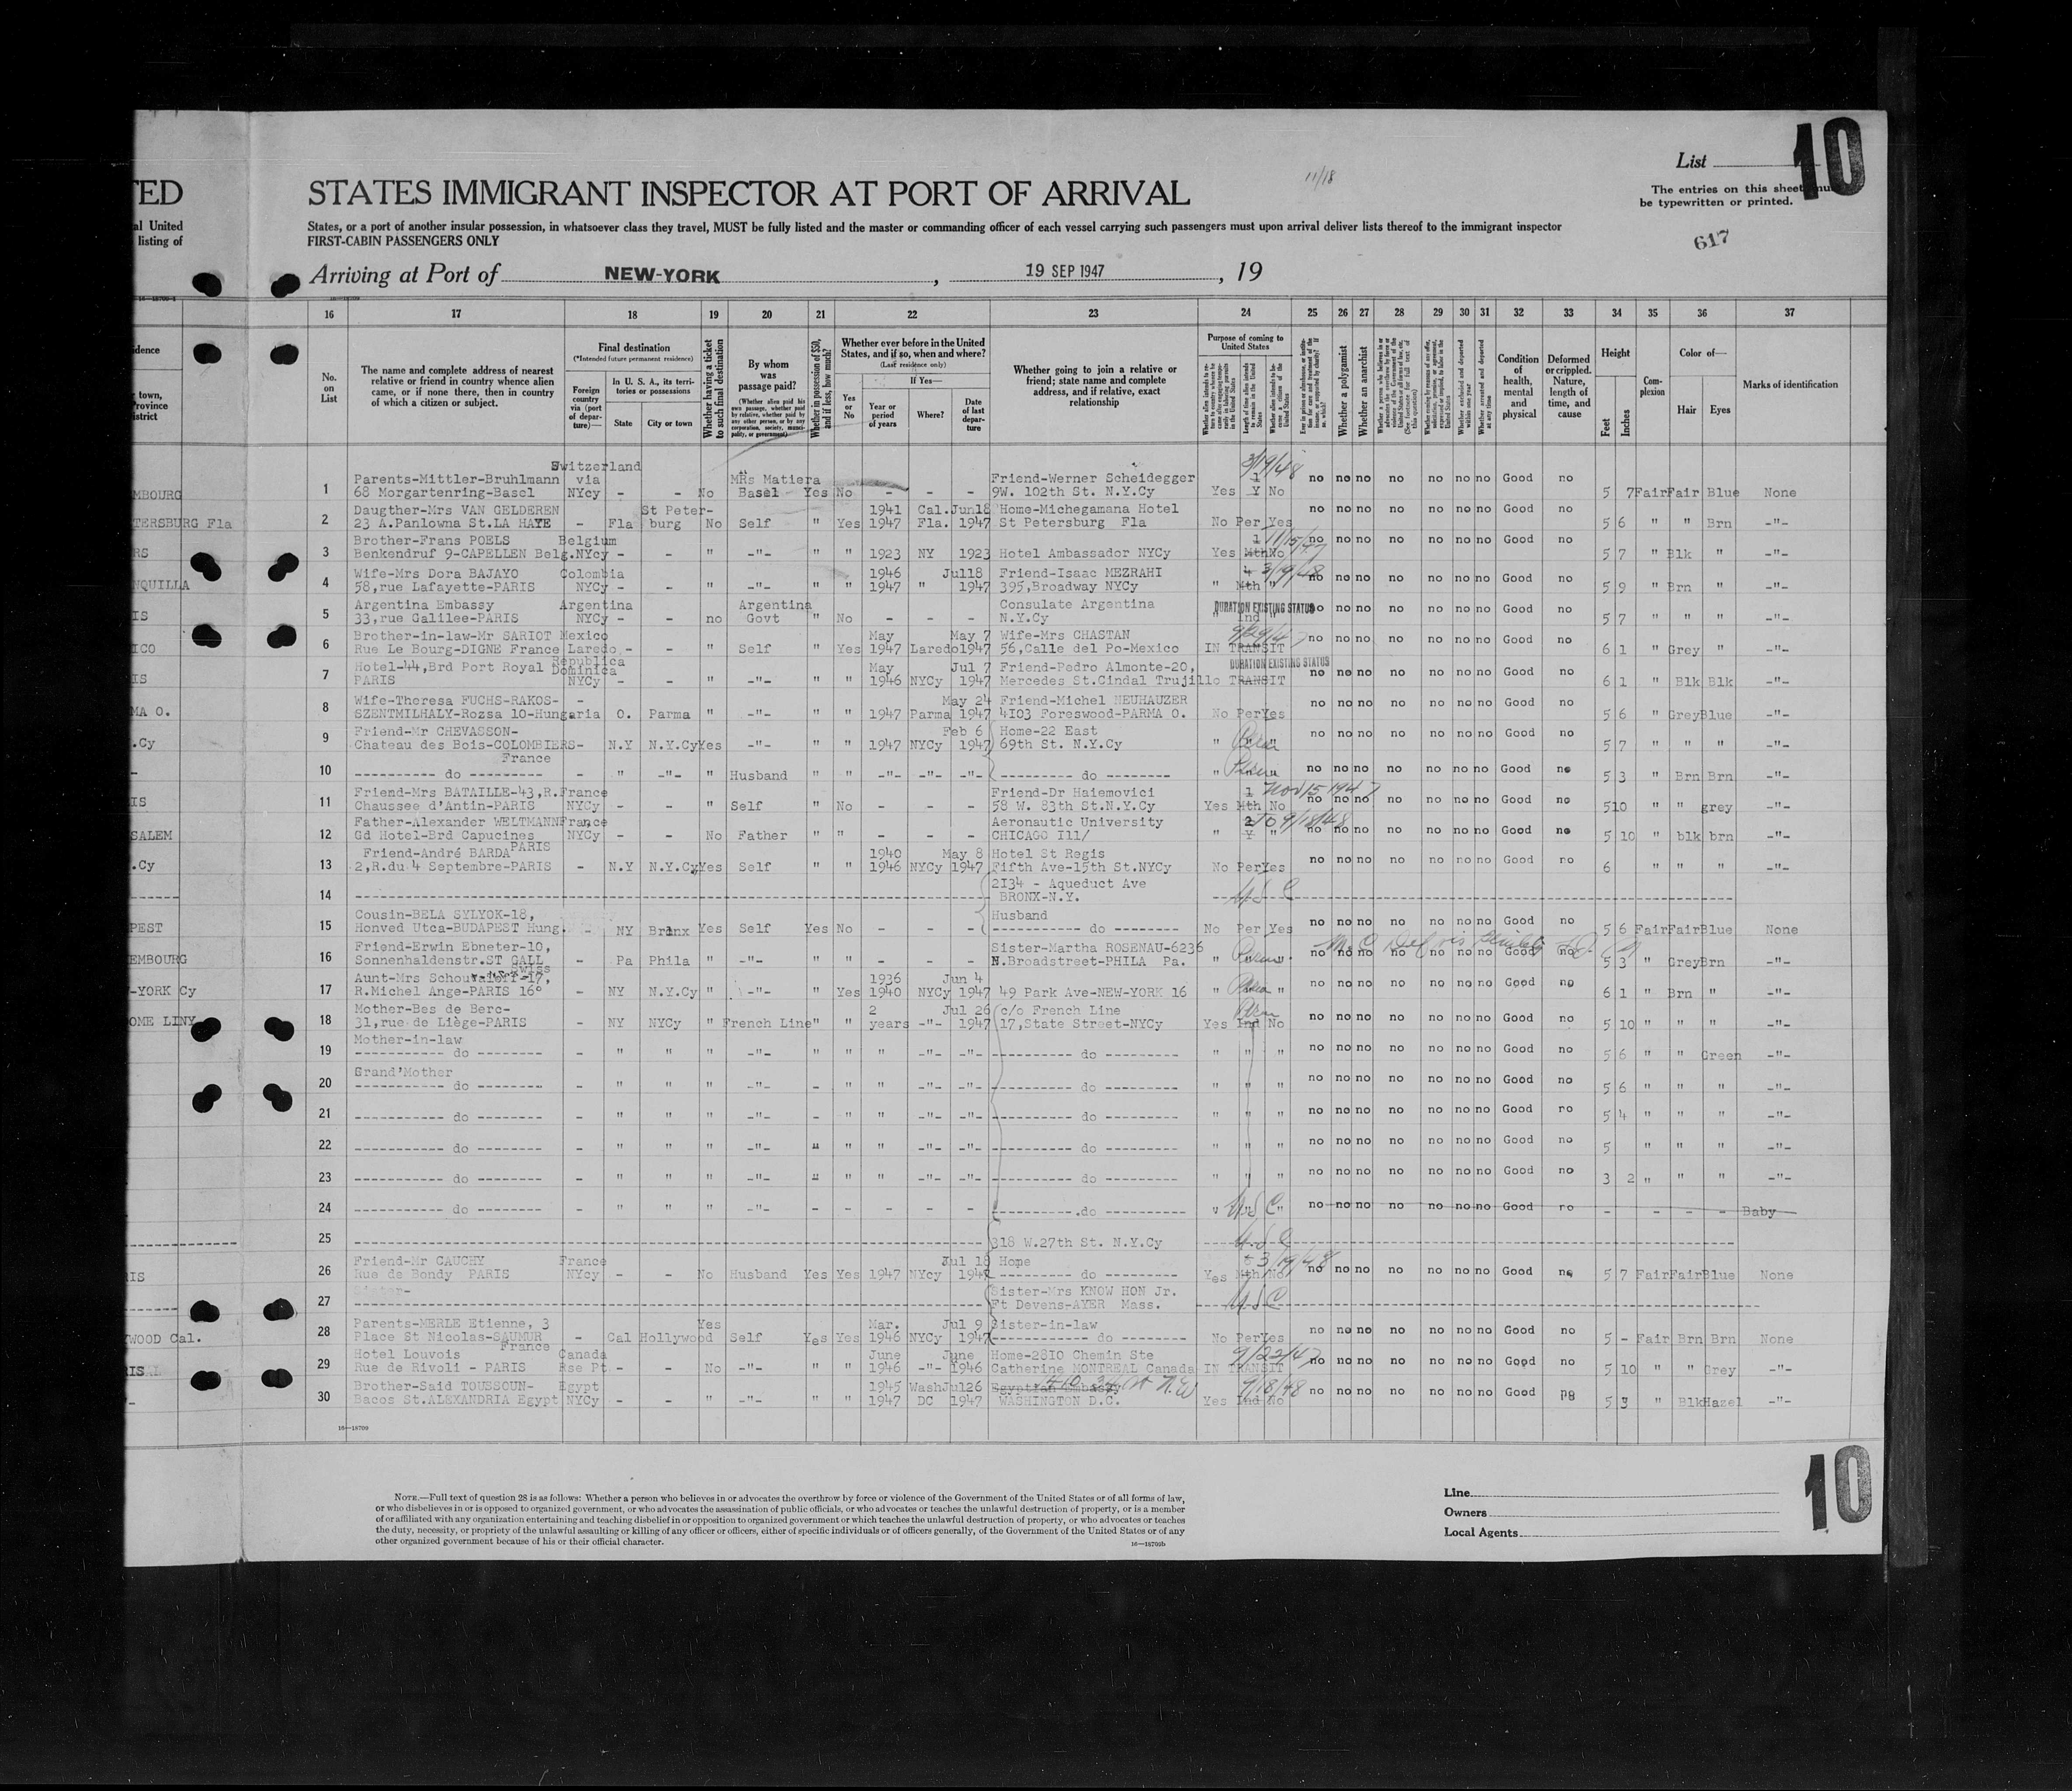 10
List
11/18
TED STATES IMMIGRANT INSPECTOR AT PORT OF ARRIVAL
The entries on this sheet mu
be typewritten or printed.
al United States, or a port of another insular possession, in whatsoever class they travel, MUST be fully listed and the master or commanding officer of each vessel carrying such passengers must upon arrival deliver lists thereof to the immigrant inspector
listing of FIRST-CABIN PASSENGERS ONLY
617
Arriving at Port of NEW-YORK , 19 SEP 1947 , 19
16 17 18 19 20 21 22 23 24 25 26 27 28 29 30 31 32 33 34 35 36 37
No. on List
The name and complete address of nearest relative or friend in country whence alien came, or if none there, then in country of which a citizen or subject.
Final destination
(*Intended future permanent residence)
Foreign country via (port of departure)—
In U. S. A., its territories or possessions
State City or town
Whether having a ticket to such final destination
By whom was passage paid?
(Whether alien paid his own passage, whether paid by relative, whether paid by any other person, or by any corporation, society, municipality, or government)
Whether in possession of $50, and if less, how much?
Whether ever before in the United States, and if so, when and where?
(Last residence only)
Yes or No
If Yes—
Year or period of years Where? Date of last departure
Whether going to join a relative or friend; state name and complete address, and if relative, exact relationship
Purpose of coming to United States
Whether a polygamist
Whether an anarchist
Condition of health, mental and physical
Deformed or crippled. Nature, length of time, and cause
Height
Feet Inches
Complexion
Color of—
Hair Eyes
Marks of identification
Switzerland 3/19/48
MBOURG 1 Parents-Mittler-Bruhlmann via MRs Matiera Friend-Werner Scheidegger 1 no no no no no no no Good no
68 Morgartenring-Basel NYcy - - No Basel Yes No - - - 9W. 102th St. N.Y.Cy Yes Y No 5 7 Fair Fair Blue None
TERSBURG Fla 2 Daugther-Mrs VAN GELDEREN St Peter- 1941 Cal. Jun18 Home-Michegamana Hotel no no no no no no no Good no
23 A.Panlowna St.LA HAYE - Fla burg No Self " Yes 1947 Fla. 1947 St Petersburg Fla No Per Yes 5 6 " " Brn -"-
RS 3 Brother-Frans POELS Belgium 1 11/15/47 no no no no no no no Good no
Benkendruf 9-CAPELLEN Belg. NYcy - - " -"- " " 1923 NY 1923 Hotel Ambassador NYCy Yes Mth No 5 7 " Blk " -"-
NQUILLA 4 Wife-Mrs Dora BAJAYO Colombia 1946 Jul18 Friend-Isaac MEZRAHI 3/19/48 no no no no no no no Good no
58,rue Lafayette-PARIS NYCy - - " -"- " " 1947 " 1947 395,Broadway NYCy " Mth " 5 9 " Brn " -"-
IS 5 Argentina Embassy Argentina Argentina Consulate Argentina DURATION EXISTING STATUS no no no no no no no Good no
33,rue Galilee-PARIS NYCy - - no Govt " No - - - N.Y.Cy Ind 5 7 " " " -"-
ICO 6 Brother-in-law-Mr SARIOT Mexico May May 7 Wife-Mrs CHASTAN 9/29/47 no no no no no no no Good no
Rue Le Bourg-DIGNE France Laredo - - " Self " Yes 1947 Laredo 1947 56,Calle del Po-Mexico IN TRANSIT 6 1 " Grey " -"-
IS 7 Hotel-44,Brd Port Royal Republica Dominica May Jul 7 Friend-Pedro Almonte-20, DURATION EXISTING STATUS no no no no no no no Good no
PARIS NYCy - - " -"- " " 1946 NYCy 1947 Mercedes St.Cindal Trujillo TRANSIT 6 1 " Blk Blk -"-
MA O. 8 Wife-Theresa FUCHS-RAKOS- - May 24 Friend-Michel NEUHAUZER no no no no no no no Good no
SZENTMILHALY-Rozsa 10-Hungaria O. Parma " -"- " " 1947 Parma 1947 4103 Foreswood-PARMA O. No Per Yes 5 6 " Grey Blue -"-
.Cy 9 Friend-Mr CHEVASSON- Feb 6 Home-22 East no no no no no no no Good no
Chateau des Bois-COLOMBIERS- N.Y N.Y.Cy Yes -"- " " 1947 NYCy 1947 69th St. N.Y.Cy " " 5 7 " " " -"-
France
- 10 ---------- do --------- - " -"- " Husband " " -"- -"- -"- --------- do -------- " " no no no no no no no Good no 5 3 " Brn Brn -"-
IS 11 Friend-Mrs BATAILLE-43,R. France Friend-Dr Haiemovici 1 Nov 15 1947 no no no no no no no Good no
Chaussee d'Antin-PARIS NYCy - - " Self " No - - - 58 W. 83th St.N.Y.Cy Yes Mth No 5 10 " " grey -"-
SALEM 12 Father-Alexander WELTMANN France Aeronautic University 2 To 9/18/48 no no no no no no no Good no
Gd Hotel-Brd Capucines NYCy - - No Father " " - - - CHICAGO Ill/ " Y " 5 10 " blk brn -"-
PARIS
.Cy 13 Friend-André BARDA 1940 May 8 Hotel St Regis no no no no no no no Good no
2,R.du 4 Septembre-PARIS - N.Y N.Y.Cy Yes Self " " 1946 NYCy 1947 Fifth Ave-15th St.NYCy No Per Yes 6 " " " -"-
14 2134 - Aqueduct Ave
BRONX-N.Y. U S C
PEST 15 Cousin-BELA SYLYOK-18, Husband no no no no no no no Good no
Honved Utca-BUDAPEST Hung. - NY Bronx Yes Self Yes No - - - --------- do -------- No Per Yes 5 6 Fair Fair Blue None
EMBOURG 16 Friend-Erwin Ebneter-10, Sister-Martha ROSENAU-6236
Sonnenhaldenstr.ST GALL - Pa Phila " -"- " " - - - N.Broadstreet-PHILA Pa. " " no no no no no no no Good no 5 3 " Grey Brn -"-
Swiss
-YORK Cy 17 Aunt-Mrs Schouvaloff-17, 1936 Jun 4 no no no no no no no Good no
R.Michel Ange-PARIS 16° - NY N.Y.Cy " -"- " Yes 1940 NYCy 1947 49 Park Ave-NEW-YORK 16 " " 6 1 " Brn " -"-
OME LINY 18 Mother-Bes de Berc- 2 Jul 26 c/o French Line no no no no no no no Good no
31,rue de Liège-PARIS - NY NYCy " French Line " " years -"- 1947 17,State Street-NYCy Yes Ind No 5 10 " " " -"-
19 Mother-in-law
----------- do -------- - " " " -"- " " " -"- -"- ---------- do --------- " " " no no no no no no no Good no 5 6 " " Green -"-
20 Grand'Mother
----------- do -------- - " " " -"- - " " -"- -"- ---------- do --------- " " " no no no no no no no Good no 5 6 " " " -"-
21 ----------- do -------- - " " " -"- - " " -"- -"- ---------- do --------- " " " no no no no no no no Good no 5 4 " " " -"-
22 ----------- do -------- - " " " -"- " " " -"- -"- ---------- do --------- " " " no no no no no no no Good no 5 " " " -"-
23 ----------- do -------- - " " " -"- " " " -"- -"- ---------- do --------- " " " no no no no no no no Good no 3 2 " " " -"-
24 ----------- do -------- - " " " -"- - - - - - ---------.do --------- " U S C " no no no no no no no Good no - - - - Baby
25 318 W.27th St. N.Y.Cy U S C
IS 26 Friend-Mr CAUCHY France Jul 18 Home 3/19/48 no no no no no no no Good no
Rue de Bondy PARIS NYCy - - No Husband Yes Yes 1947 NYCy 1947 --------- do -------- Yes Mth No 5 7 Fair Fair Blue None
27 Sister- Sister-Mrs KNOW HON Jr.
Ft Devens-AYER Mass. U S C
28 Parents-MERLE Etienne, 3 Yes Mar. Jul 9 Sister-in-law no no no no no no no Good no
WOOD Cal. Place St Nicolas-SAUMUR - Cal Hollywood Self Yes Yes 1946 NYCy 1947 ----------- do --------- No Per Yes 5 - Fair Brn Brn None
France
29 Hotel Louvois Canada June June Home-2810 Chemin Ste 9/22/47 no no no no no no no Good no
RIS Rue de Rivoli - PARIS Rse Pt - - No -"- " " 1946 -"- 1946 Catherine MONTREAL Canada IN TRANSIT 5 10 " " Grey -"-
30 Brother-Said TOUSSOUN- Egypt 1945 Wash Jul26 Egyptian Embassy no no no no no no no Good no
- Bacos St.ALEXANDRIA Egypt NYCy - - " -"- " " 1947 DC 1947 WASHINGTON D.C. Yes Ind No 5 3 " Blk Hazel -"-
16—18709
NOTE.—Full text of question 28 is as follows: Whether a person who believes in or advocates the overthrow by force or violence of the Government of the United States or of all forms of law,
or who disbelieves in or is opposed to organized government, or who advocates the assassination of public officials, or who advocates or teaches the unlawful destruction of property, or is a member
of or affiliated with any organization entertaining and teaching disbelief in or opposition to organized government or which teaches the unlawful destruction of property, or who advocates or teaches
the duty, necessity, or propriety of the unlawful assaulting or killing of any officer or officers, either of specific individuals or of officers generally, of the Government of the United States or of any
other organized government because of his or their official character.
16—18709b
Line
Owners
Local Agents
10